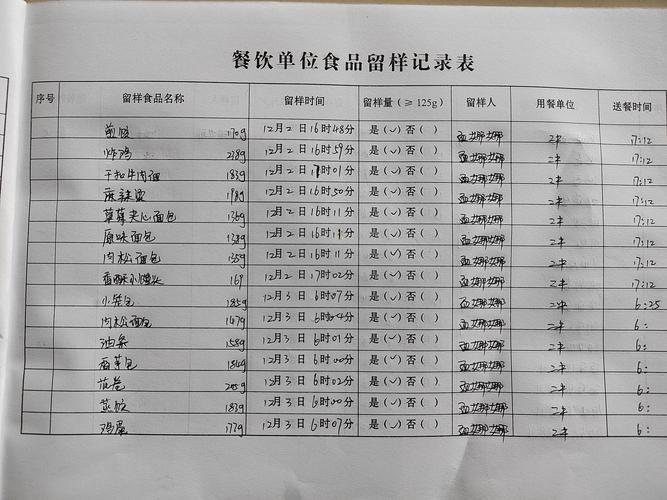 餐饮单位食品留样记录表
序号 留样食品名称 留样时间 留样量（≥125g） 留样人 用餐单位 送餐时间
煎饺 170g 12月2日16时48分 是(✓)否( ) 孟娜娜 二半 17:12
炸鸡 218g 12月2日16时59分 是(✓)否( ) 孟娜娜 二半 17:12
干扣牛肉面 183g 12月2日17时01分 是(✓)否( ) 孟娜娜 二半 17:12
麻辣烫 198g 12月2日16时50分 是(✓)否( ) 孟娜娜 二半 17:12
草莓夹心面包 136g 12月2日16时11分 是(✓)否( ) 孟娜娜 二半 17:12
原味面包 138g 12月2日16时11分 是(✓)否( ) 孟娜娜 二半 17:12
肉松面包 135g 12月2日16时11分 是(✓)否( ) 孟娜娜 二半 17:12
香酥小馒头 169 12月2日17时02分 是(✓)否( ) 孟娜娜 二半 17:12
小笼包 185g 12月3日6时07分 是(✓)否( ) 孟娜娜 二半 6:25
肉松面包 147g 12月3日6时04分 是(✓)否( ) 孟娜娜 二半 6:
油条 158g 12月3日6时01分 是(✓)否( ) 孟娜娜 二半 6:
香芋包 184g 12月3日6时00分 是(✓)否( ) 孟娜娜 二半 6:
花卷 205g 12月3日6时02分 是(✓)否( ) 孟娜娜 二半 6:
蒸饺 183g 12月3日6时00分 是(✓)否( ) 孟娜娜 二半 6:
鸡蛋 177g 12月3日6时07分 是(✓)否( ) 孟娜娜 二半 6: